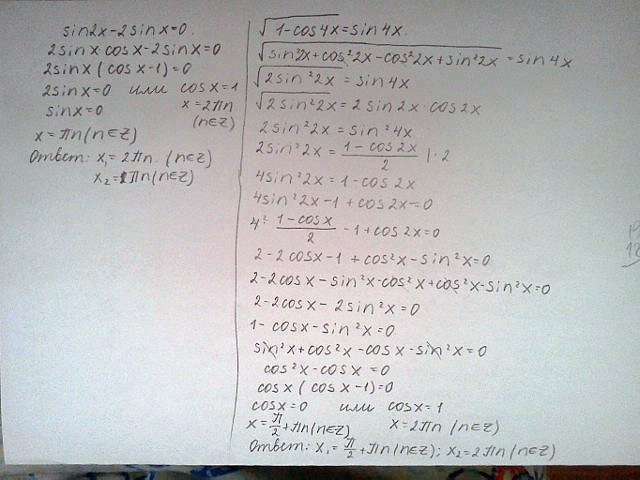 sin2x-2sinx=0.
2sinx cosx-2sinx=0
2sinx(cosx-1)=0
2sinx=0 или cosx=1
sinx=0 x=2πn
(n∈Z)
x=πn(n∈Z)
Ответ: x₁=2πn (n∈Z)
x₂=πn(n∈Z)
√1-cos4x=sin4x.
√sin²2x+cos²2x-cos²2x+sin²2x=sin4x
√2sin²2x=sin4x
√2sin²2x=2sin2x·cos2x
2sin²2x=sin²4x
2sin²2x=(1-cos2x)/2 |·2
4sin²2x=1-cos2x
4sin²2x-1+cos2x=0
4·(1-cosx)/2-1+cos2x=0
2-2cosx-1+cos²x-sin²x=0
2-2cosx-sin²x-cos²x+cos²x-sin²x=0
2-2cosx-2sin²x=0
1-cosx-sin²x=0
sin²x+cos²x-cosx-sin²x=0
cos²x-cosx=0
cosx(cosx-1)=0
cosx=0 или cosx=1
x=π/2+πn(n∈Z) x=2πn(n∈Z)
Ответ: x₁=π/2+πn(n∈Z); x₂=2πn(n∈Z)